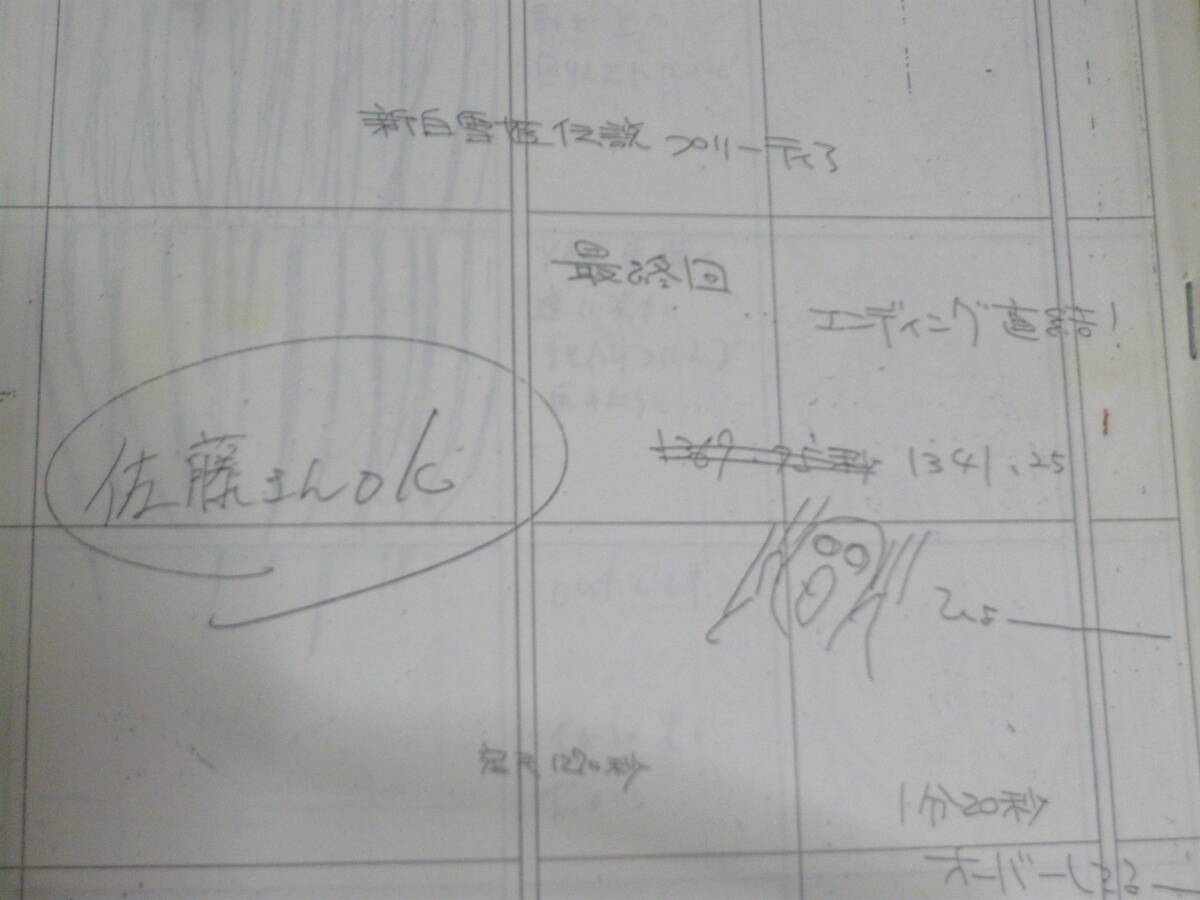 新白雪姫伝説 プリーティア
最終回
エンディング直結!
佐藤さんOK
1369.75秒 1341.25
ひょ
定尺1270秒
1分20秒
オーバーしてる